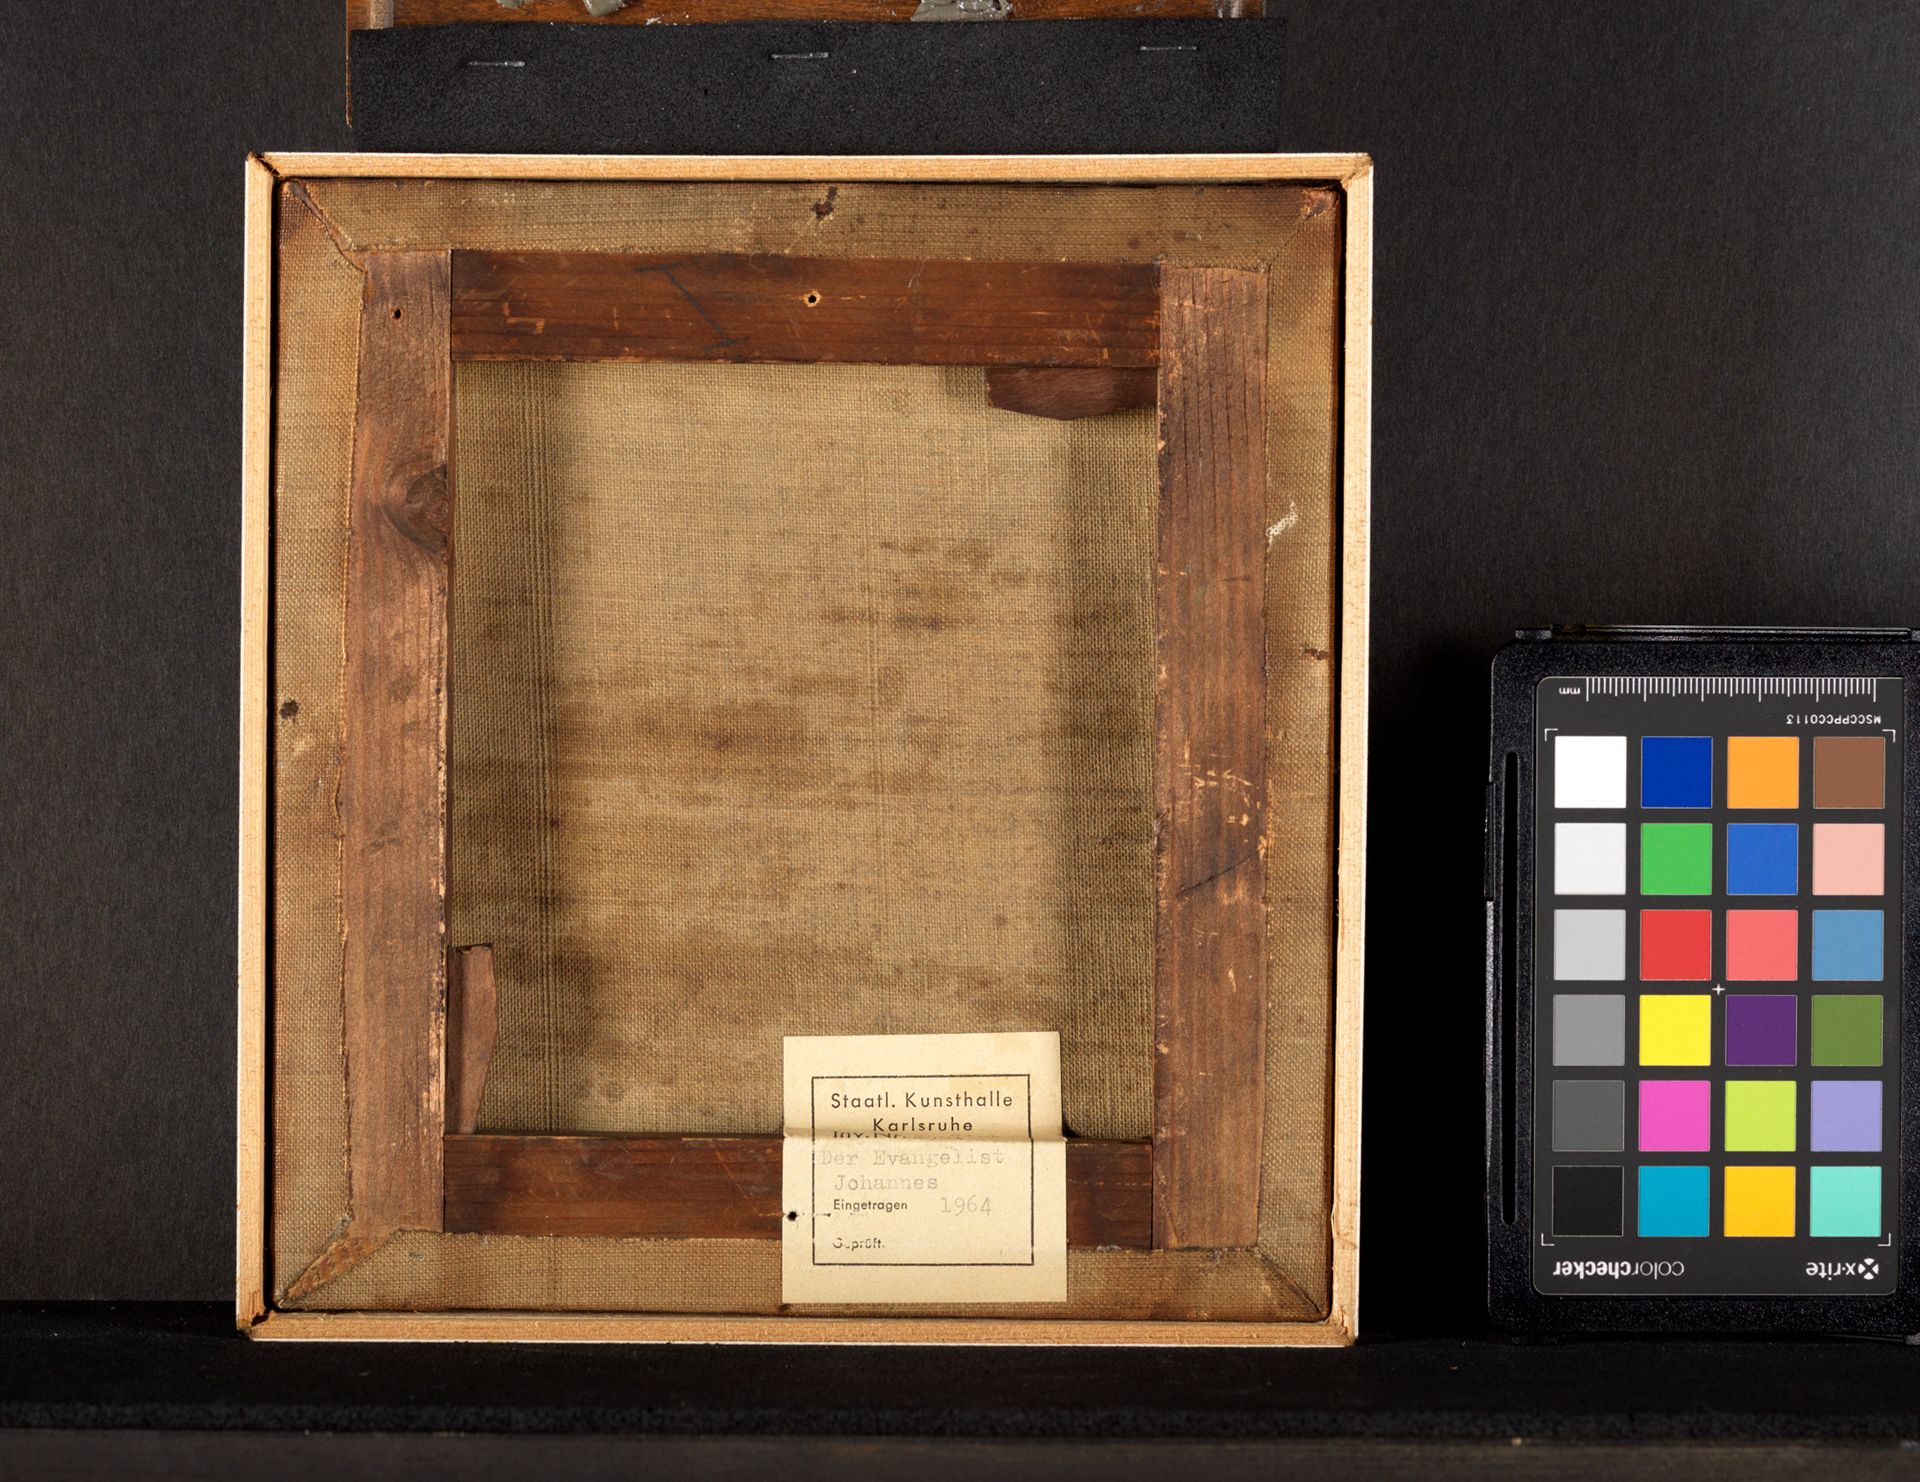 Staatl. Kunsthalle
Karlsruhe
Der Evangelist
Johannes
Eingetragen 1964
Geprüft.
mm
MSCCPPCC0113
colorchecker
x·rite